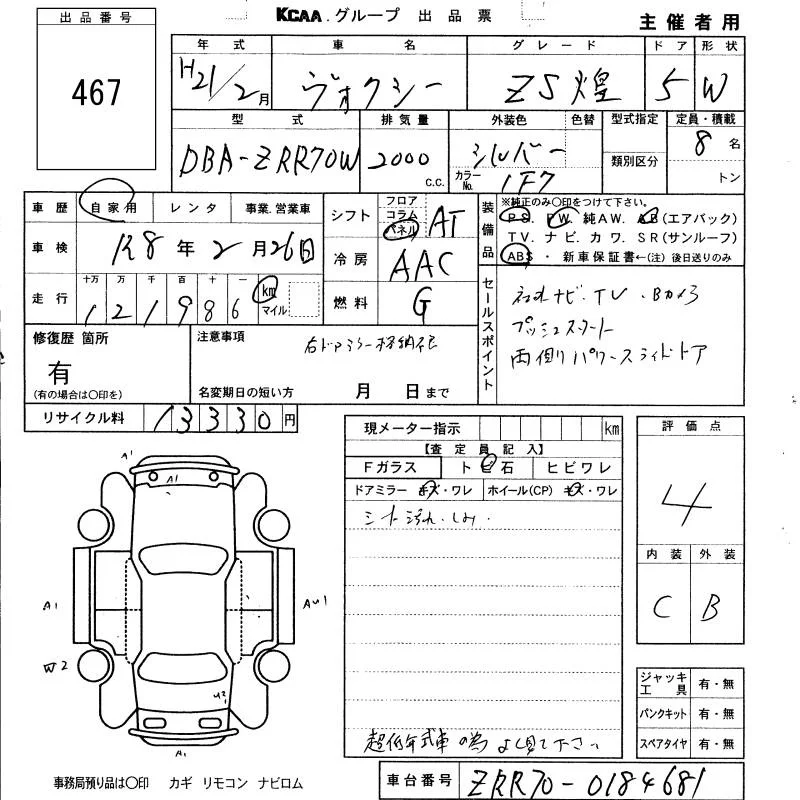 出品番号
467
KCAA.グループ 出品票
主催者用
年式 車名 グレード ドア 形状
H21/2月 ヴォクシー ZS煌 5 W
型式 排気量 外装色 色替 型式指定 定員・積載
DBA-ZRR70W 2000 C.C. シルバー カラーNo. 1F7 類別区分 8名 トン
車歴 自家用 レンタ 事業.営業車
車検 R8年2月26日
走行 十万 万 千 百 十 一
121986 km マイル
シフト フロア コラム パネル AT
冷房 AAC
燃料 G
装備品 ※純正のみ〇印をつけて下さい。
PS. PW. 純AW. AB(エアバック)
TV. ナビ. カワ. SR(サンルーフ)
ABS・新車保証書←(注)後日送りのみ
セールスポイント
社外ナビ・TV・Bカメラ
プッシュスタート
両側パワースライドドア
修復歴 箇所
有
(有の場合は〇印を)
注意事項
右ドアミラー格納不良
名変期日の短い方 月 日まで
リサイクル料 13330円
現メーター指示 km
【査定員記入】
Fガラス トビ石 ヒビワレ
ドアミラー キズ・ワレ ホイール(CP) キズ・ワレ
シート汚れ.しみ.
超低年式車の為 よく見て下さい
評価点
4
内装 外装
C B
A1
A1
A1 AU1
W2
U2
A1
ジャッキ工具 有・無
パンクキット 有・無
スペアタイヤ 有・無
事務局預り品は〇印 カギ リモコン ナビロム
車台番号 ZRR70-0184681